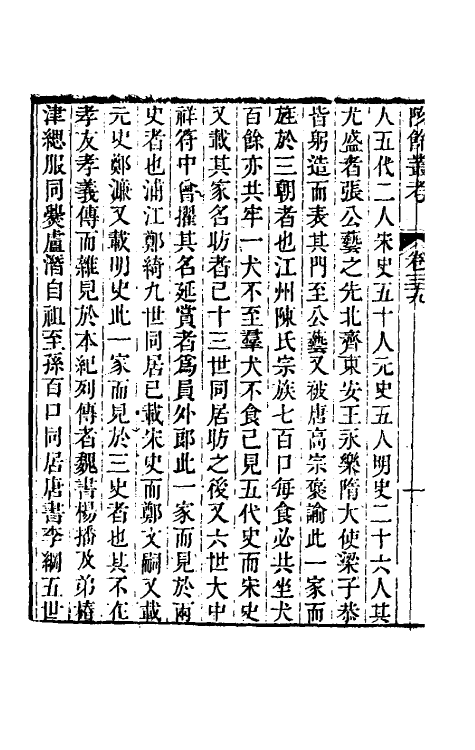 陔餘叢考 卷三十九 一
人五代二人宋史五十人元史五人明史二十六人其
尤盛者張公藝之先北齊東安王永樂隋大使梁子恭
皆躬造而表其門至公藝又被唐高宗褒諭此一家而
旌於三朝者也江州陳氏宗族七百口每食必共坐犬
百餘亦共牢一犬不至羣犬不食己見五代史而宋史
又載其家名昉者己十三世同居昉之後又六世大中
祥符中曾擢其名延賞者為員外郎此一家而見於兩
史者也浦江鄭綺九世同居已載宋史而鄭文嗣又載
元史鄭濂又載明史此一家而見於三史者也其不在
孝友孝義傳而雜見於本紀列傳者魏書楊播及弟椿
津緦服同爨盧潛自祖至孫百口同居唐書李綱五世